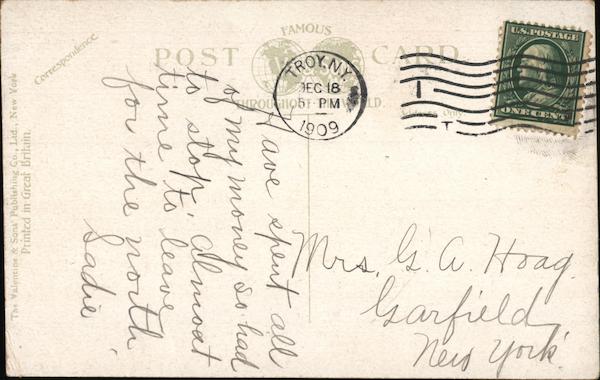 FAMOUS
POST CARD.
THROUGHOUT THE WORLD.
Correspondence.
Address Only.
The Valentine & Sons' Publishing Co., Ltd., New York
Printed in Great Britain.
TROY, N.Y.
DEC 18
5 PM
1909
1
T
U.S. POSTAGE
ONE CENT
Have spent all
of my money so had
to stop. Almost
time to leave
for the north
Sadie
Mrs. G. A. Hoag.
Garfield
New York.